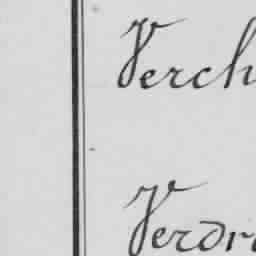 Verch
Verdr